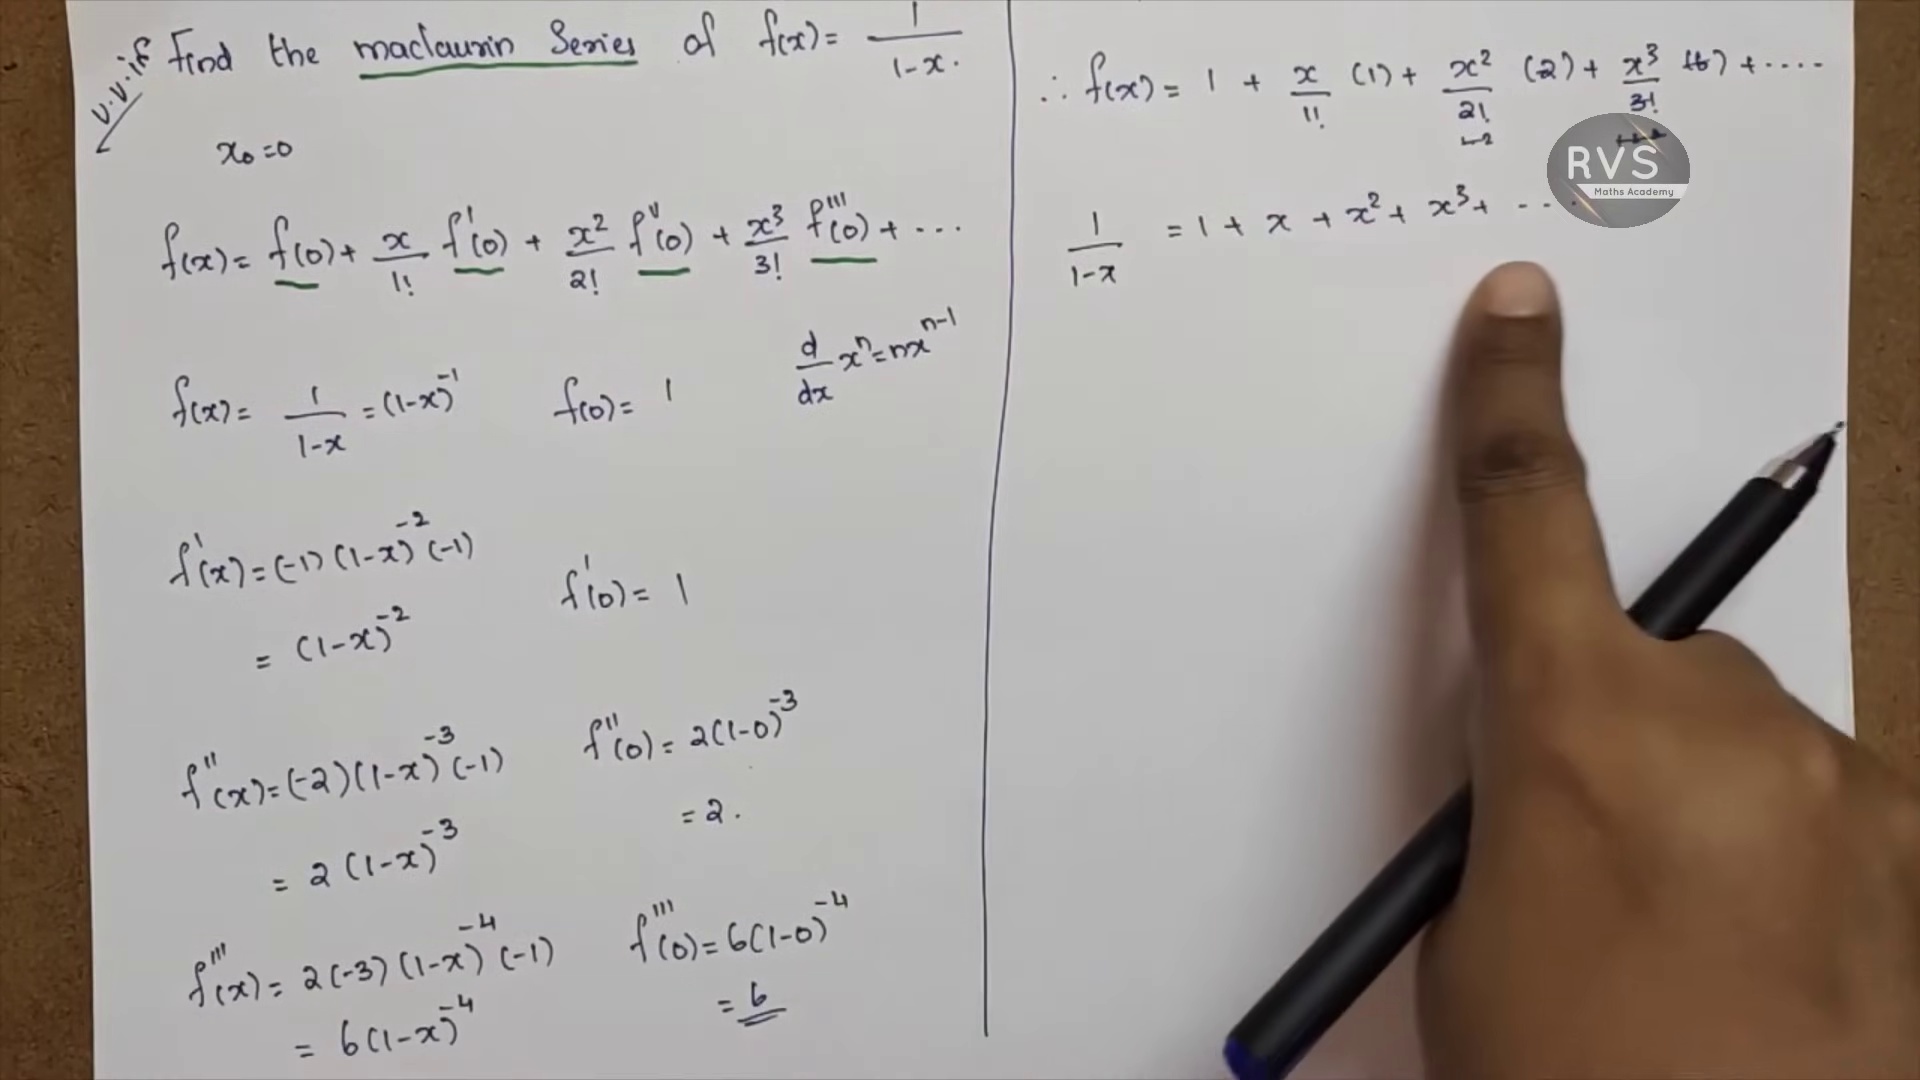 v.v.if
Find the maclaurin Series of f(x) = 1/1-x.
x₀=0
f(x) = f(0) + x/1! f'(0) + x²/2! f''(0) + x³/3! f'''(0) + ...
f(x) = 1/1-x = (1-x)⁻¹ f(0) = 1 d/dx xⁿ = nxⁿ⁻¹
f'(x) = (-1)(1-x)⁻²(-1) f'(0) = 1
= (1-x)⁻²
f''(x) = (-2)(1-x)⁻³(-1) f''(0) = 2(1-0)⁻³
= 2(1-x)⁻³ = 2.
f'''(x) = 2(-3)(1-x)⁻⁴(-1) f'''(0) = 6(1-0)⁻⁴
= 6(1-x)⁻⁴ = 6
∴ f(x) = 1 + x/1! (1) + x²/2! (2) + x³/3! (6) + ....
1/1-x = 1 + x + x² + x³ + ....
RVS
Maths Academy